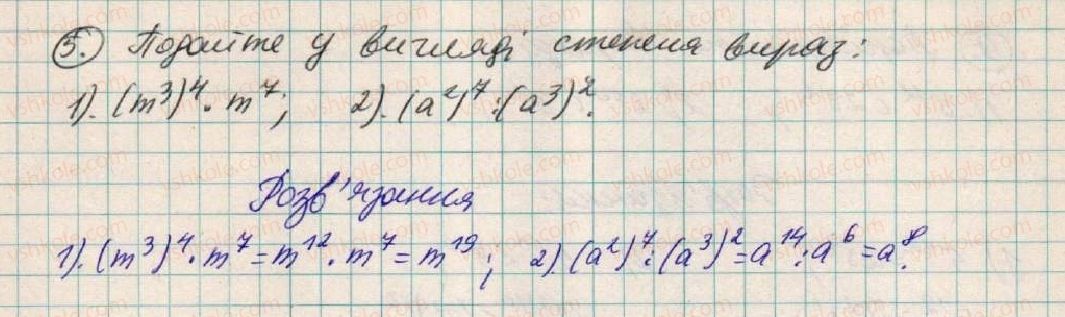 5. Подайте у вигляді степеня вираз:
1). (m³)⁴ · m⁷; 2). (a²)⁷ : (a³)².
Розв'язання
1). (m³)⁴ · m⁷ = m¹² · m⁷ = m¹⁹; 2). (a²)⁷ : (a³)² = a¹⁴ : a⁶ = a⁸.